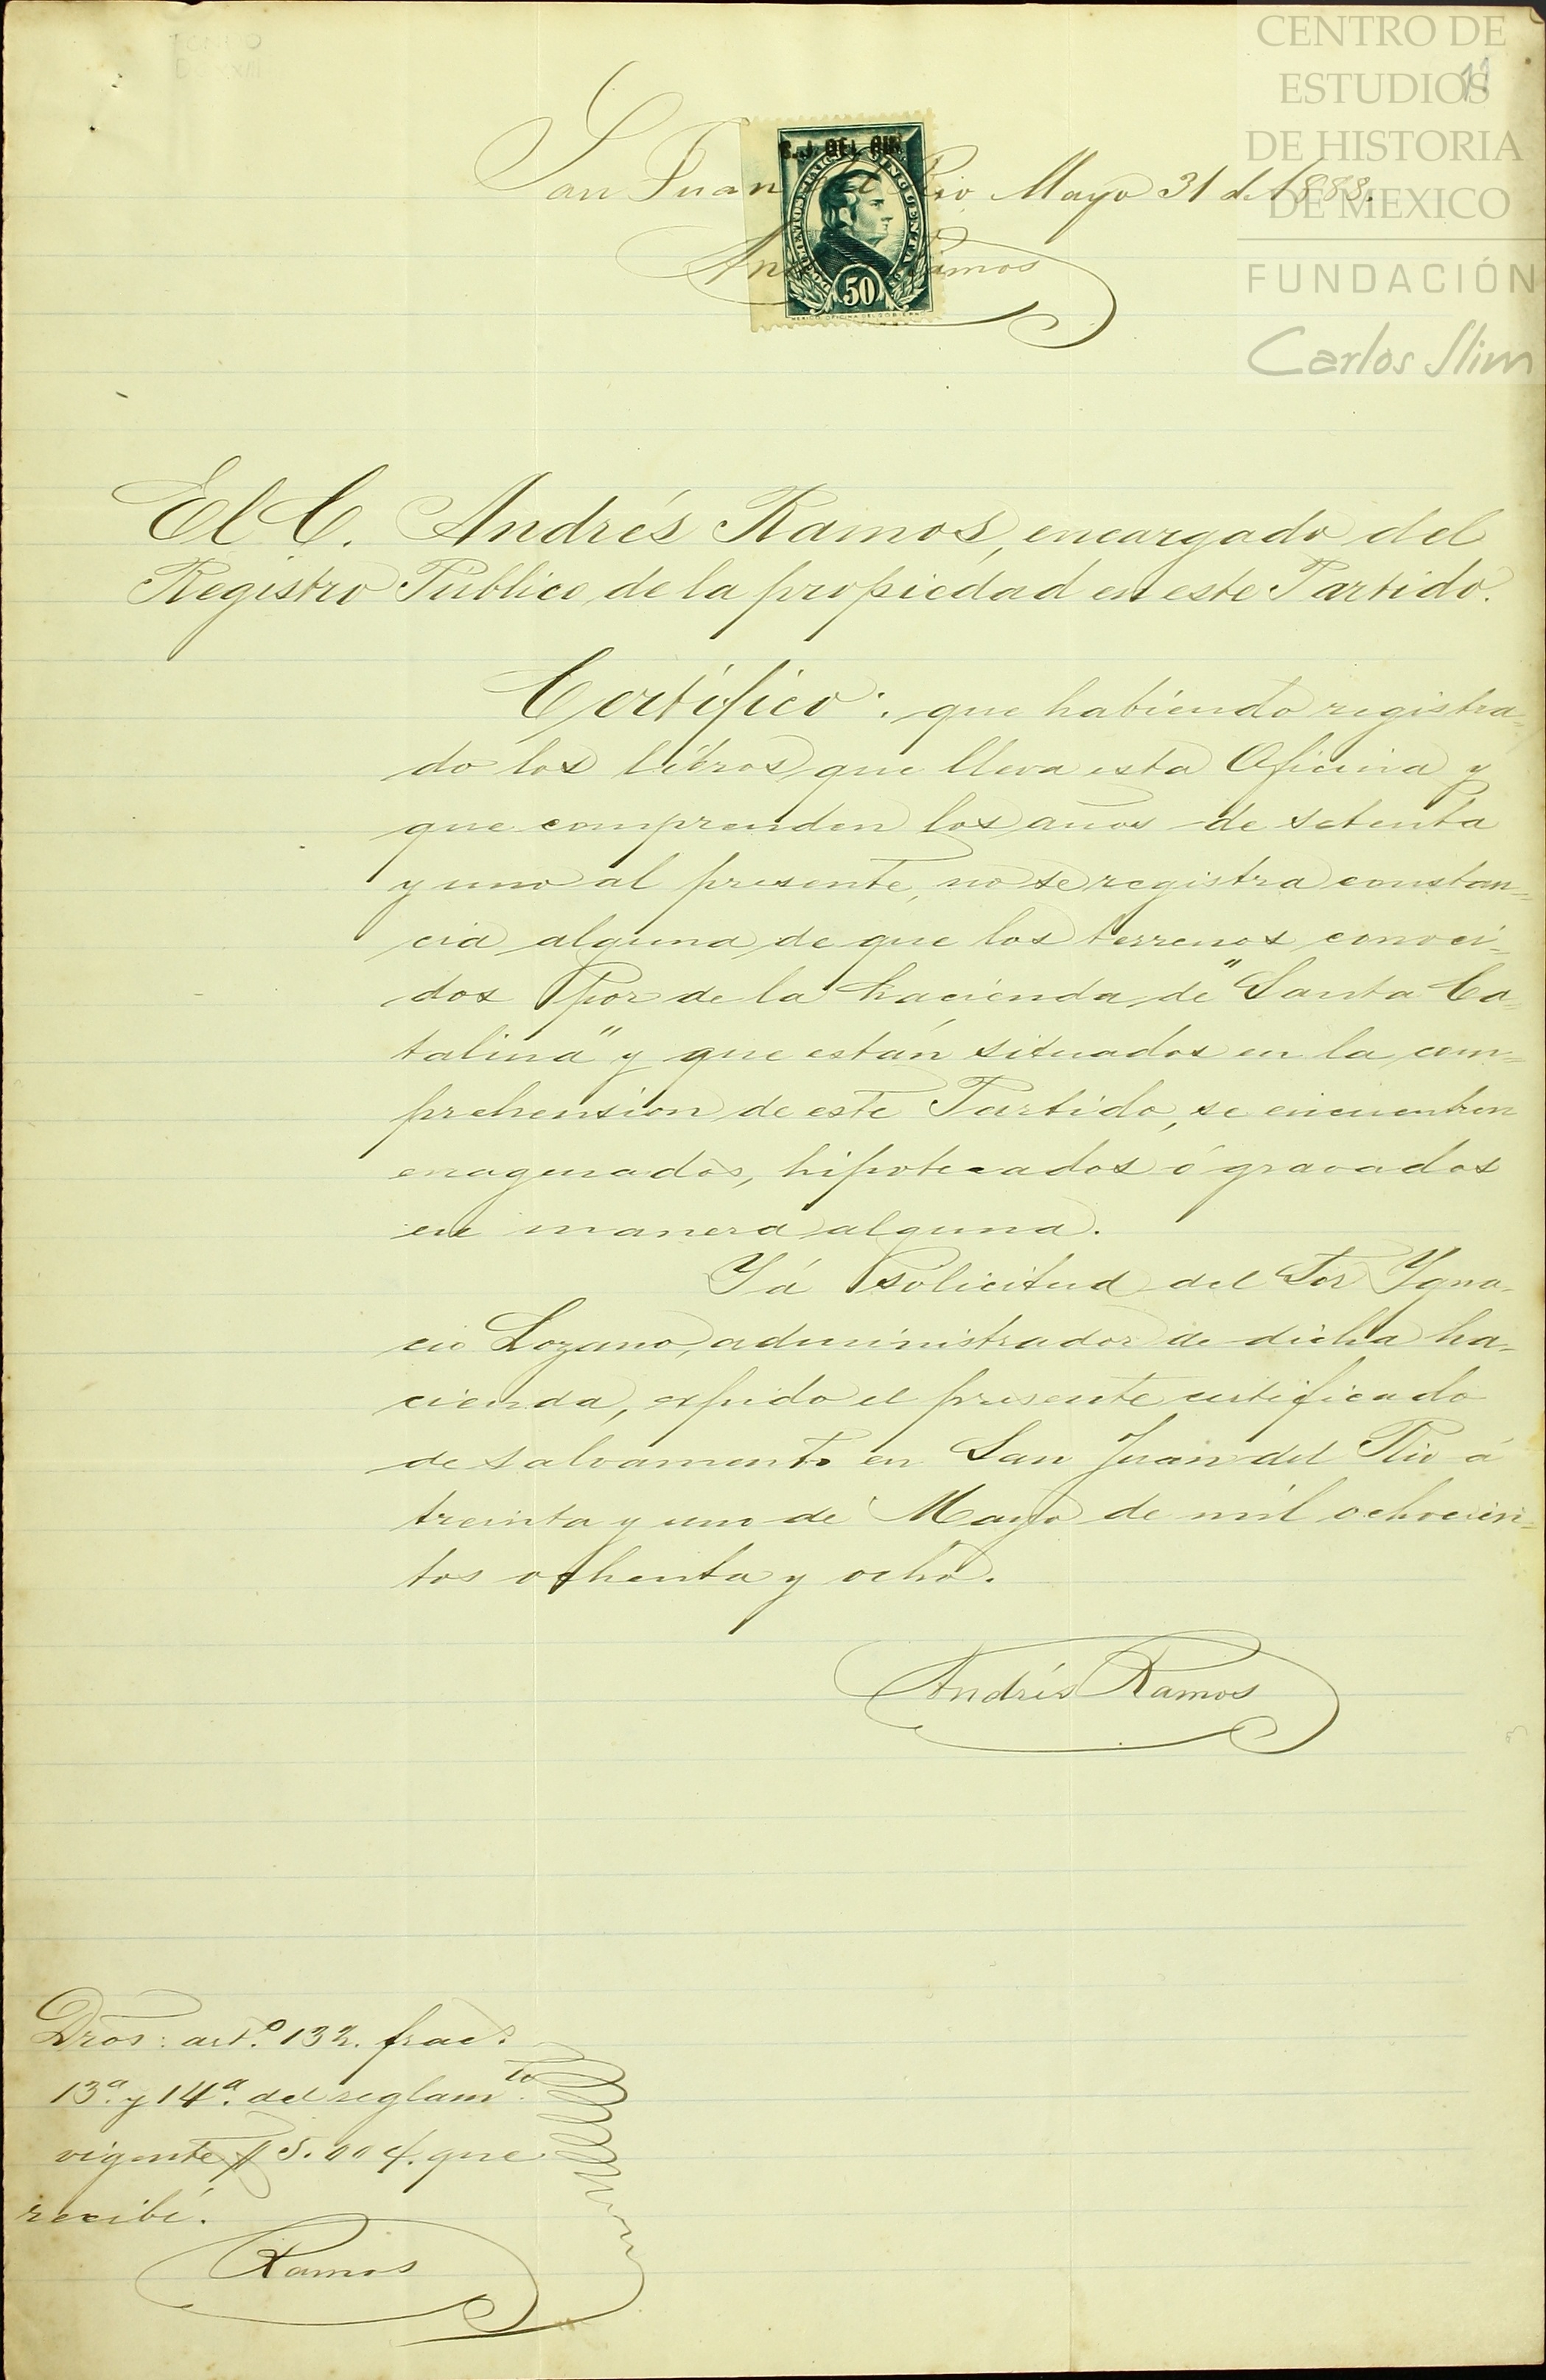 CENTRO DE
ESTUDIOS
DE HISTORIA
DE MEXICO
FUNDACIÓN
Carlos Slim
11
San Juan del Rio Mayo 31 de 1888.
S. J. DEL RIO
DOCUMENTOS Y LIBROS CINCUENTA CS
50
Andrés Ramos
El C. Andrés Ramos, encargado del
Registro Público de la propiedad en este Partido.
Certifico: que habiendo registra=
do los libros que lleva esta Oficina y
que comprenden los años de setenta
y uno al presente, no se registra constan=
cia alguna de que los terrenos conoci=
dos por de la hacienda de "Santa Ca=
talina" y que están situados en la com=
prehension de este Partido, se encuentren
enagenados, hipotecados ó gravados
en manera alguna.
Y á solicitud del Sor Ygna=
cio Lozano, administrador de dicha ha=
cienda, expido el presente certificado
de salvamento en San Juan del Rio á
treinta y uno de Mayo de mil ochocien=
tos ochenta y ocho.
Andrés Ramos
Dros: artº. 132. fracs.
13ª. y 14ª. del reglamto.
vigente $5.00 c. que
recibí.
Ramos